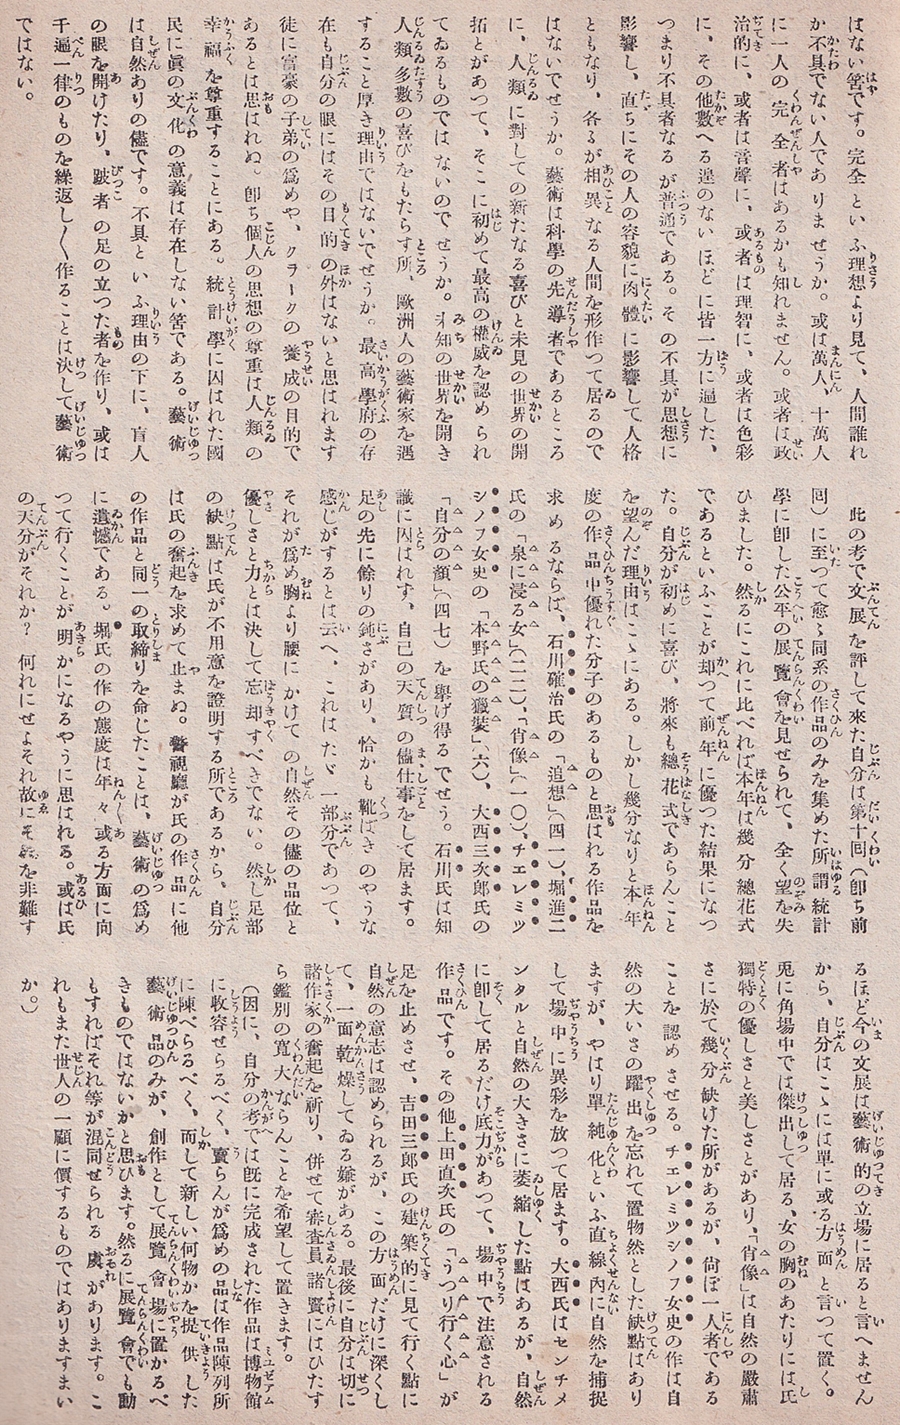 はない筈です。完全といふ理想より見て、人間誰れ
か不具でない人でありませうか。或は萬人、十萬人
に一人の完全者はあるかも知れません。或者は政
治的に、或者は音聲に、或者は理智に、或者は色彩
に、その他數へる遑のないほどに皆一方に逼した、
つまり不具者なるが普通である。その不具が思想に
影響し、直ちにその人の容貌に肉體に影響して人格
ともなり、各〻が相異なる人間を形作つて居るので
はないでせうか。藝術は科學の先導者であるところ
に、人類に對しての新たなる喜びと未見の世界の開
拓とがあつて、そこに初めて最高の權威を認められ
てゐるものではないのでせうか。未知の世界を開き
人類多數の喜びをもたらす所、歐洲人の藝術家を遇
すること厚き理由ではないでせうか。最高學府の存
在も自分の眼にはその目的の外はないと思はれます
徒に富豪の子弟の爲めや、クラークの養成の目的で
あるとは思はれぬ。卽ち個人の思想の尊重は人類の
幸福を尊重することにある。統計學に囚はれた國
民に眞の文化の意義は存在しない筈である。藝術
は自然ありの儘です。不具といふ理由の下に、盲人
の眼を開けたり、跛者の足の立つた者を作り、或は
千遍一律のものを繰返し〱作ることは決して藝術
ではない。
此の考で文展を評して來た自分は第十回(卽ち前
回)に至つて愈〻同系の作品のみを集めた所謂統計
學に卽した公平の展覽會を見せられて、全く望を失
ひました。然るにこれに比べれば本年は幾分總花式
であるといふことが却つて前年に優つた結果になつ
た。自分が初めに喜び、將來も總花式であらんこと
を望んだ理由はこゝにある。しかし幾分なりと本年
度の作品中優れた分子のあるものと思はれる作品を
求めるならば、石川確治氏の「追想」(四一)、堀進二
氏の「泉に浸る女」(二二)、「肖像」(一〇)、チエレミツ
シノフ女史の「本野氏の獵裝」(六)、大西三次郎氏の
「自分の顏」(四七)を擧げ得るでせう。石川氏は知
識に囚はれず、自己の天質の儘仕事をして居ます。
足の先に餘りの鈍さがあり、恰かも靴ばきのやうな
感じがするとは云へ、これはたゞ一部分であつて、
それが爲め胸より腰にかけての自然その儘の品位と
優しさと力とは決して忘却すべきでない。然し足部
の缺點は氏が不用意を證明する所であるから、自分
は氏の奮起を求めて止まぬ。警視廳が氏の作品に他
の作品と同一の取締りを命じたことは、藝術の爲め
に遺憾である。堀氏の作の態度は年々或る方面に向
つて行くことが明かになるやうに思はれる。或は氏
の天分がそれか？何れにせよそれ故にそれを非難す
るほど今の文展は藝術的の立場に居ると言へません
から、自分はこゝには單に或る方面と言つて置く。
兎に角場中では傑出して居る、女の胸のあたりには氏
獨特の優しさと美しさとがあり、「肖像」は自然の嚴肅
さに於て幾分缺けた所があるが、尙ほ一人者である
ことを認めさせる。チエレミツシノフ女史の作は自
然の大いさの躍出を忘れて置物然とした缺點はあり
ますが、やはり單純化といふ直線內に自然を捕捉
して場中に異彩を放つて居ます。大西氏はセンチメ
ンタルと自然の大きさに萎縮した點はあるが、自然
に卽して居るだけ底力があつて、場中で注意される
作品です。その他上田直次氏の「うつり行く心」が
足を止めさせ、吉田三郎氏の建築的に見て行く點に
自然の意志は認められるが、この方面だけに深くし
て、一面乾燥してゐる嫌がある。最後に自分は切に
諸作家の奮起を祈り、併せて審査員諸賢にはひたす
ら鑑別の寬大ならんことを希望して置きます。
(因に、自分の考では旣に完成された作品は博物館
に收容せらるべく、賣らんが爲めの品は作品陳列所
に陳べらるべく、而して新しい何物かを提供した
藝術品のみが、創作として展覽會場に置かるべ
きものではないかと思ひます。然るに展覽會でも動
もすればそれ等が混同せられる虞があります。こ
れもまた世人の一顧に價するものではありますまい
か。)